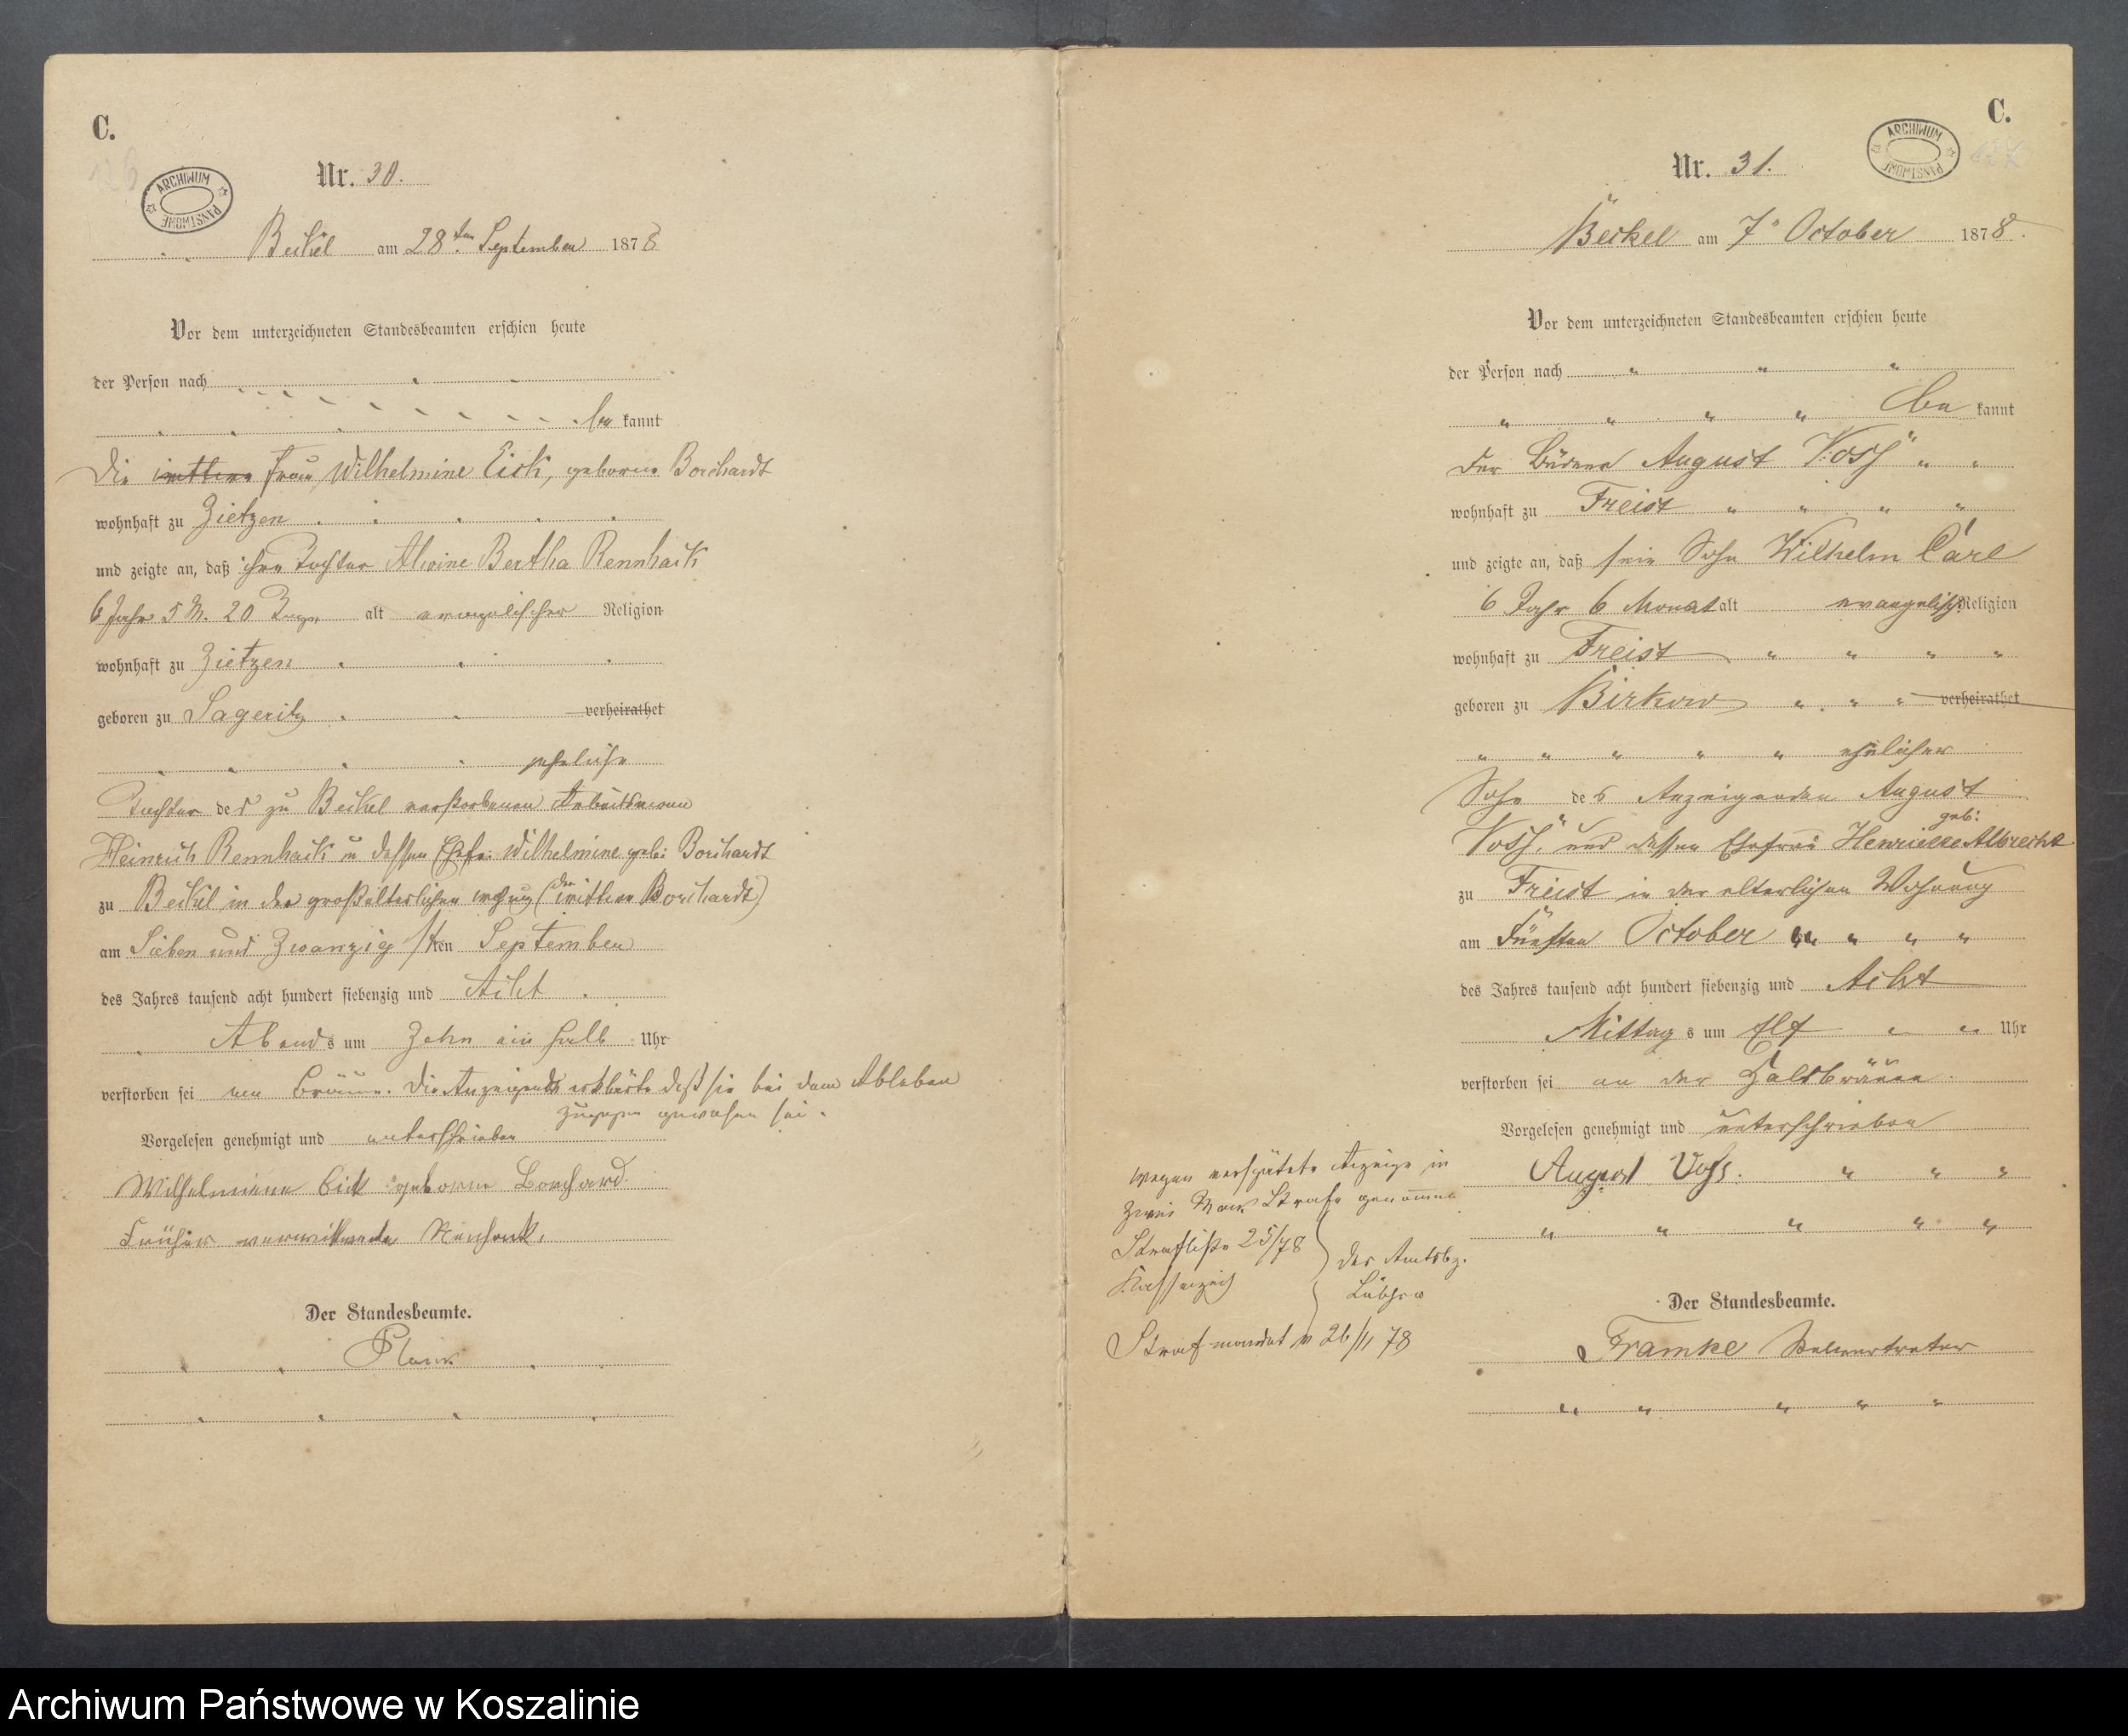 C.
ARCHIWUM PAŃSTWOWE
Nr. 30.
Beckel am 28ten September 1878
Vor dem unterzeichneten Standesbeamten erschien heute
der Person nach
bekannt
Die Frau Wilhelmine Eick, geborne Borchardt
wohnhaft zu Zietzen
und zeigte an, daß ihre Tochter Alwine Bertha Rennhack
6 Jahr 5 M. 20 Tage alt evangelischer Religion
wohnhaft zu Zietzen
geboren zu Sageritz verheirathet
eheliche
Tochter des zu Beckel verstorbenen Arbeitsmann
Heinrich Rennhack u dessen Ehefr: Wilhelmine geb: Borchardt
zu Beckel in der großelterlichen (der Wittwe Borchardt)
am Sieben und Zwanzigsten September
des Jahres tausend acht hundert siebenzig und Acht
Abends um Zehn ein halb Uhr
verstorben sei an Bräune. Die Anzeigende erklärte daß sie bei dem Ableben
zugegen gewesen sei.
Vorgelesen genehmigt und unterschrieben
Wilhelmine Eick geborne Borchard
Früher verwittwete
Der Standesbeamte.
C.
ARCHIWUM PAŃSTWOWE
Nr. 31.
Beckel am 7. October 1878.
Vor dem unterzeichneten Standesbeamten erschien heute
der Person nach " " "
" " " " bekannt
Der Büdner August Voss " "
wohnhaft zu Freist " " " "
und zeigte an, daß sein Sohn Wilhelm Carl
6 Jahr 6 Monat alt evangelisch Religion
wohnhaft zu Freist " " " "
geboren zu Birkow " " " verheirathet
" " " " " ehelicher
Sohn des Anzeigenden August
Voss, und dessen Ehefrau Henriette geb: Albrecht
zu Freist in der elterlichen Wohnung
am Fünften October " " " "
des Jahres tausend acht hundert siebenzig und Acht
Mittags um Elf " " Uhr
verstorben sei an der Halsbräune.
Vorgelesen genehmigt und unterschrieben
August Voss. " " "
" " " " "
Wegen verspätete Anzeige in
Zwei Mark Strafe genommen
Strafliste 25/78
der Amtsbz.
Lübzow
Strafmandat v 26/11 78
Der Standesbeamte.
Framke Stelvertreter
" " " " "
Archiwum Państwowe w Koszalinie